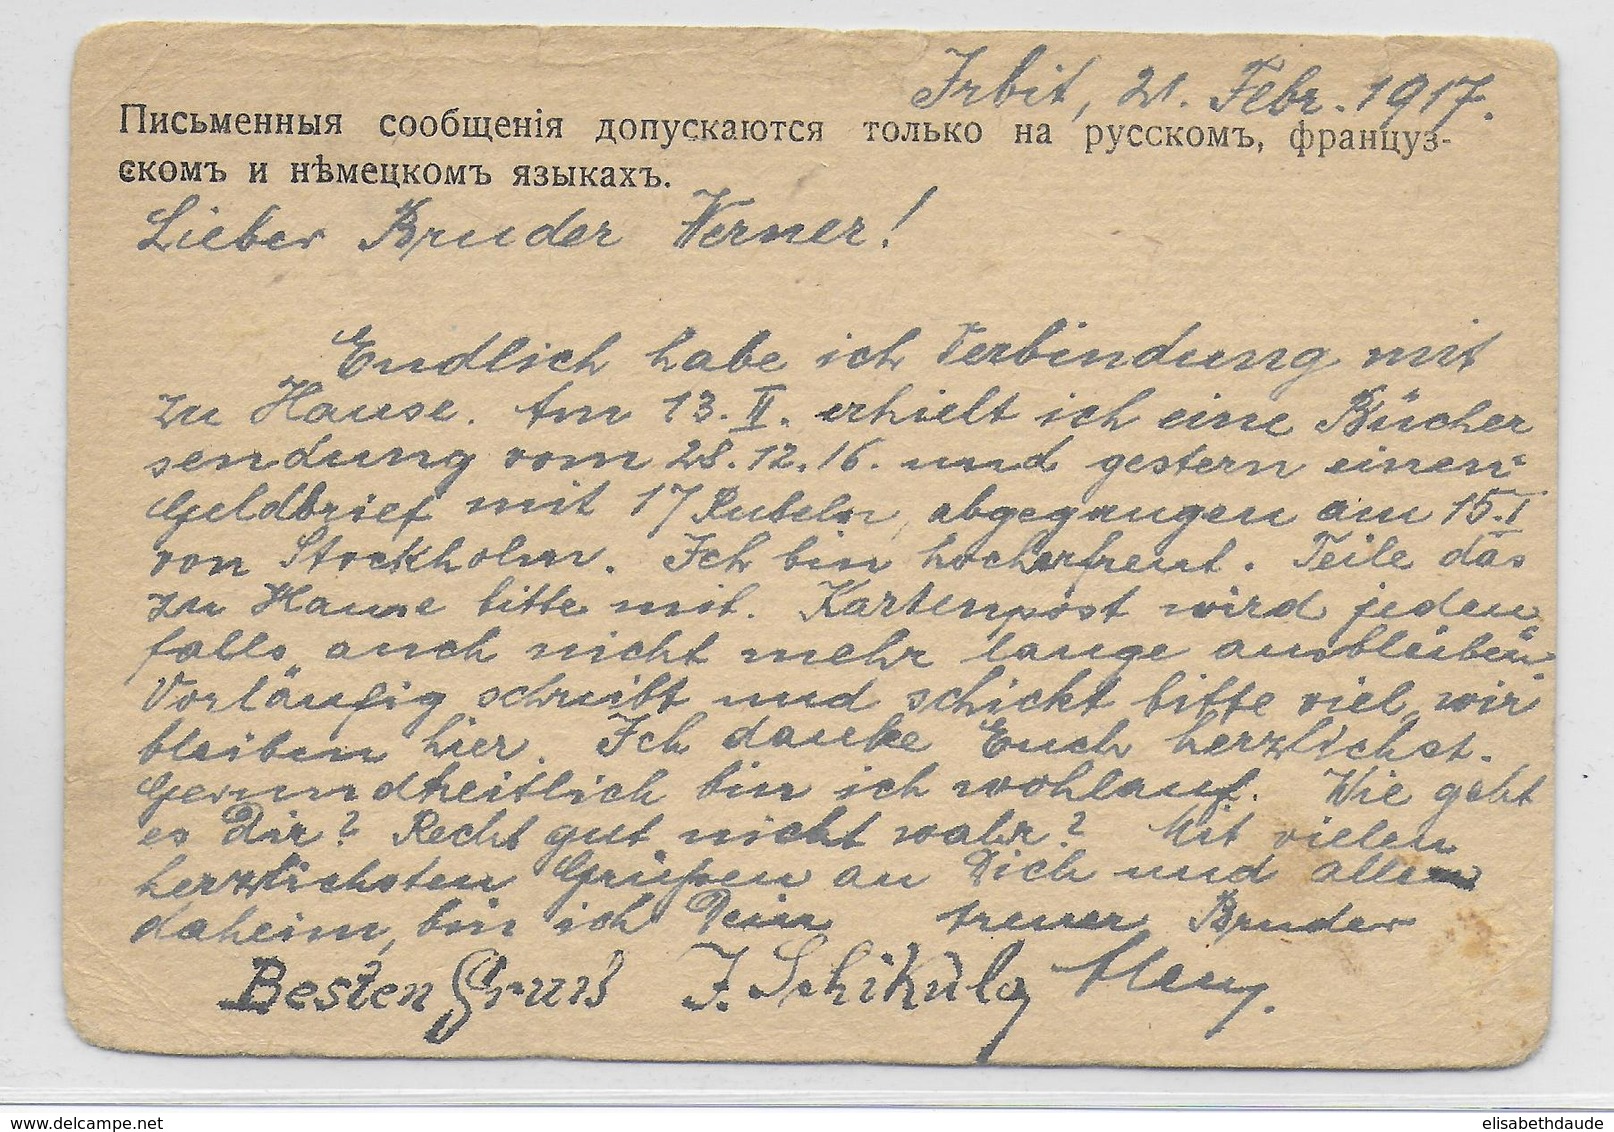 Irbit, 21. Febr. 1917.
Письменныя сообщенія допускаются только на русскомъ, француз-
скомъ и нѣмецкомъ языкахъ.
Lieber Bruder Werner!
Endlich habe ich Verbindung mit
zu Hause. Am 13. II. erhielt ich eine Bücher
sendung vom 28.12.16. und gestern einen
Geldbrief mit 17 Rubeln, abgegangen am 15.I
von Stockholm. Ich bin hocherfreut. Teile das
zu Hause bitte mit. Kartenpost wird jeden
falls auch nicht mehr lange ausbleiben
Vorläufig schreibt und schickt bitte viel, wir
bleiben hier. Ich danke Euch herzlichst.
Gesundheitlich bin ich wohlauf. Wie geht
es Dir? Recht gut nicht wahr? Mit vielen
herzlichsten Grüßen an Dich und alle
daheim, bin ich Dein treuer Bruder
Besten Gruß J. Schikula
www.delcampe.net
elisabethdaude